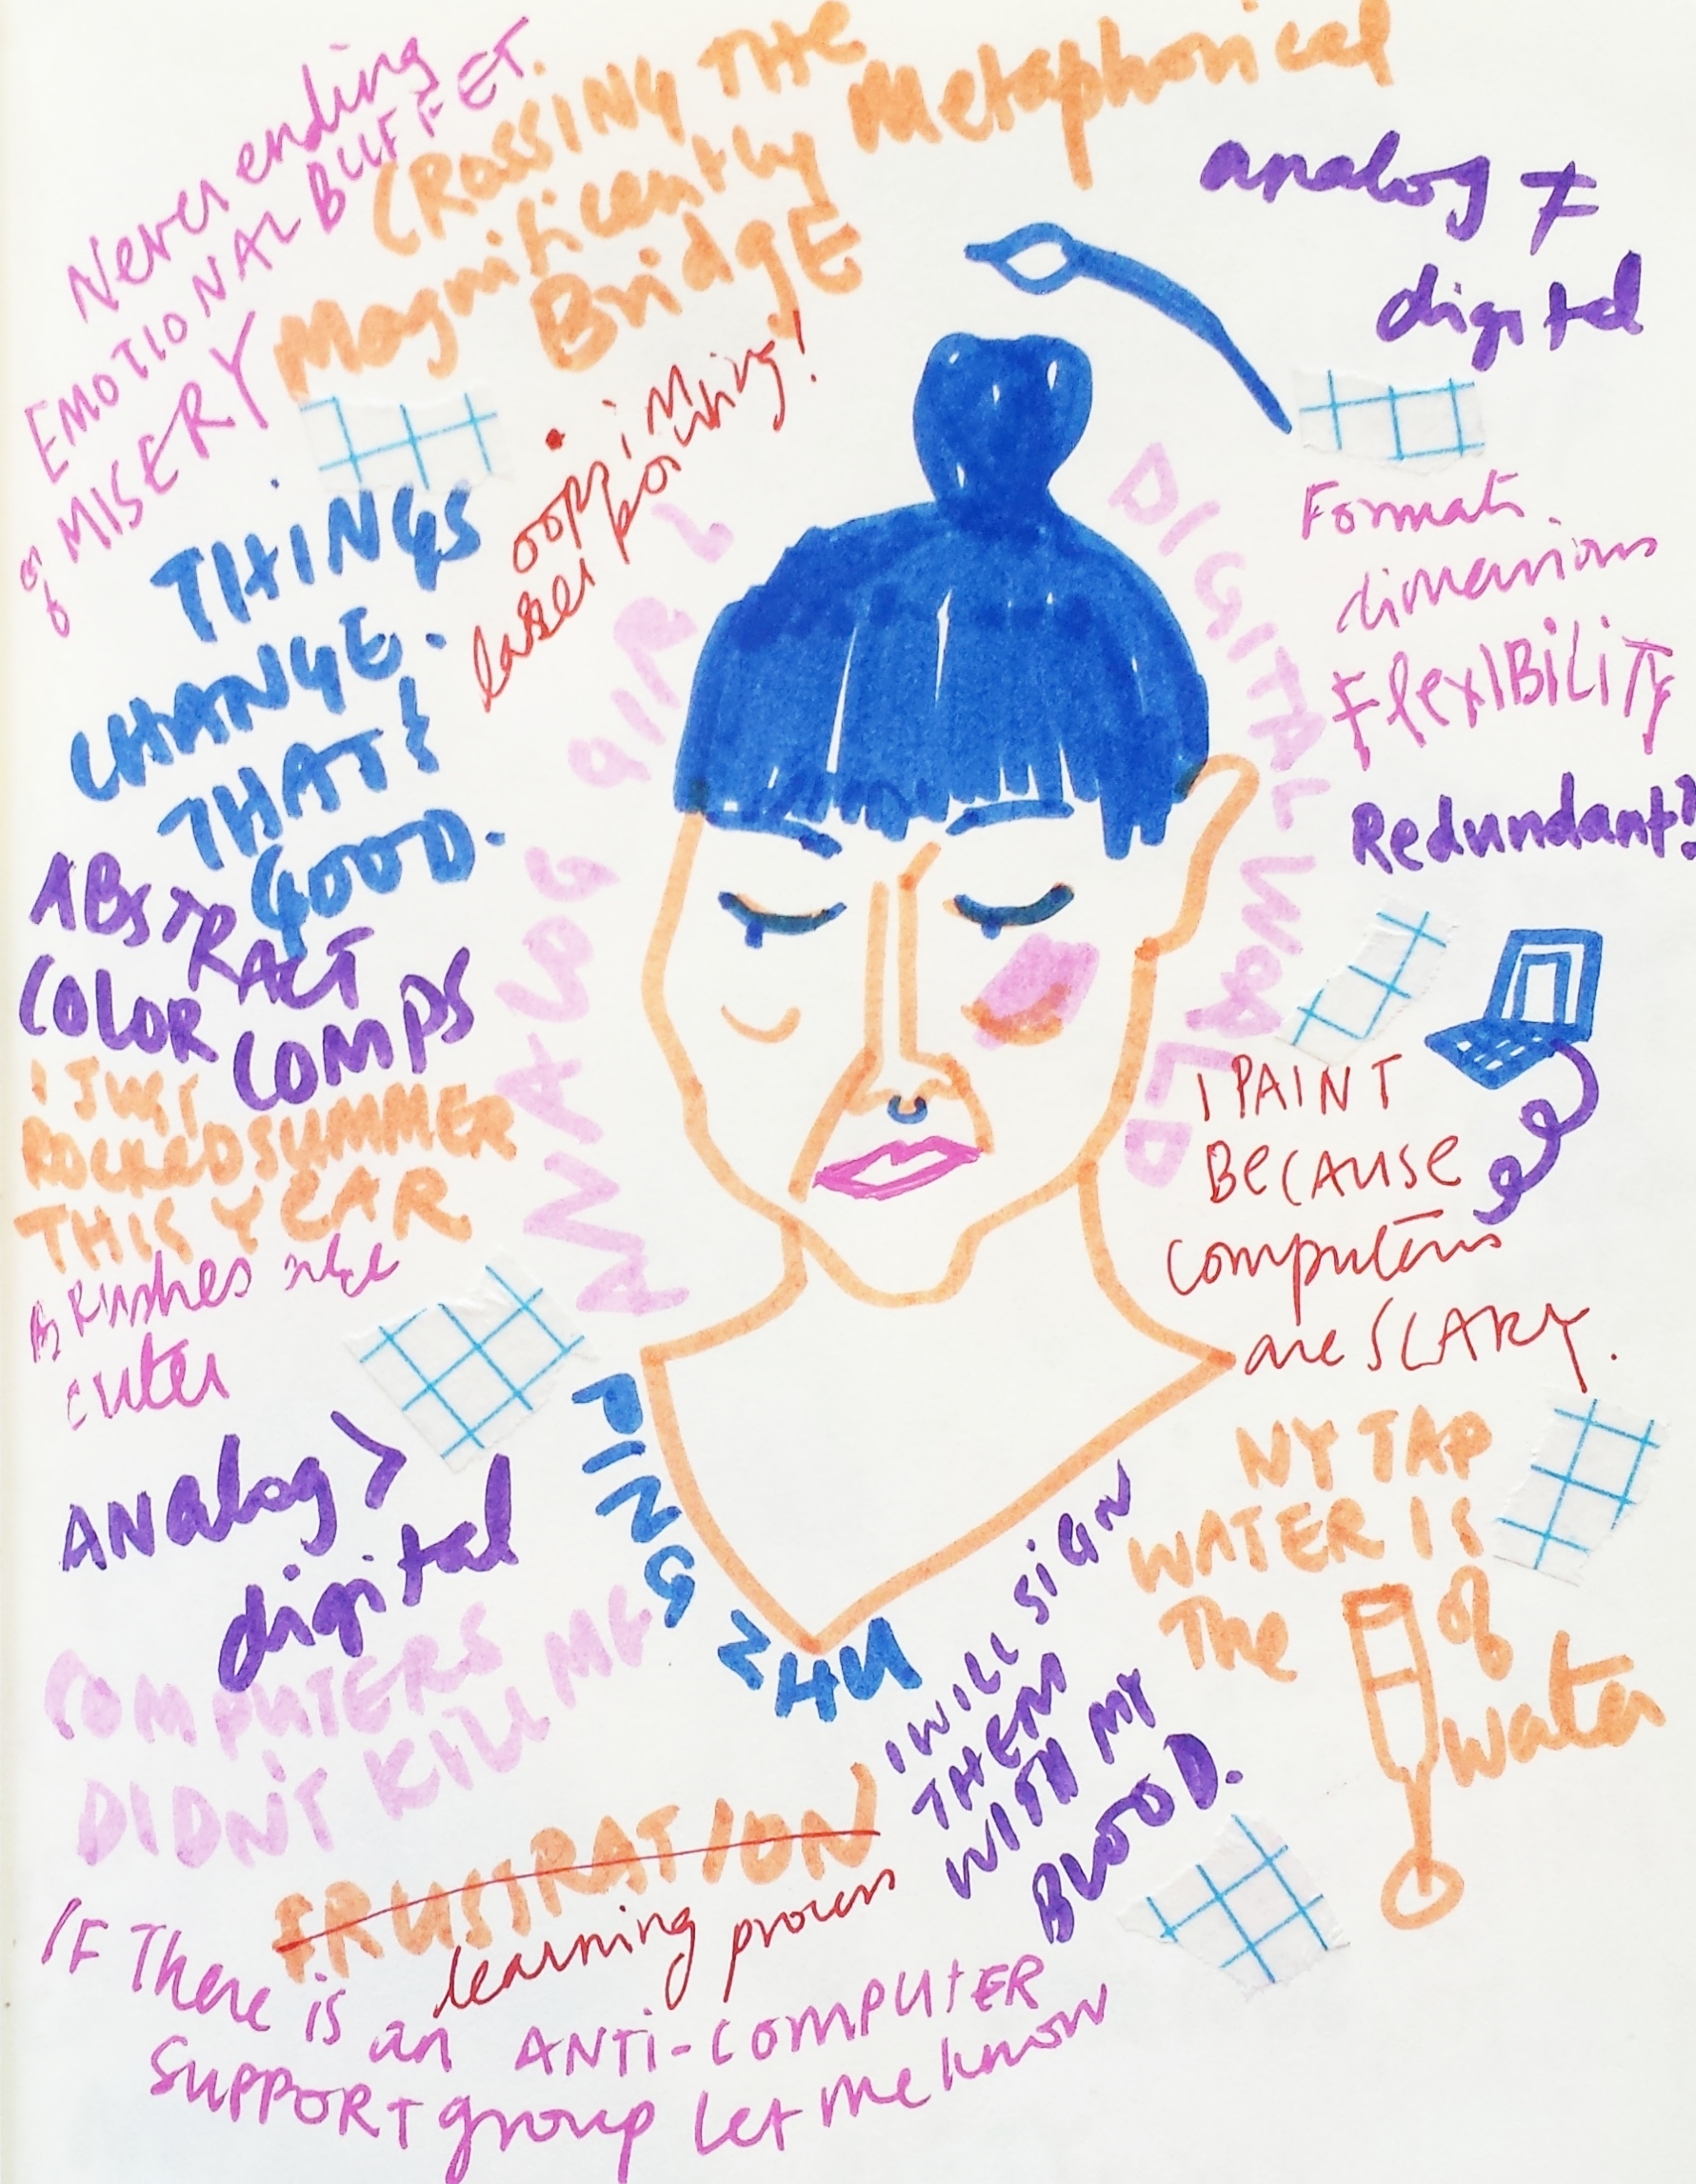 Never ending
EMOTIONAL BUFFET.
of MISERY
CROSSING THE
Magnificently Metaphorical
BridgE
analog ≠
digital
oops im
laser pointing!
THINGS
CHANGE.
THAT{
GOOD.
ANALOG GIRL
DIGITAL WORLD
Formats.
dimensions
FlexIBiLiTY
Redundant?
ABSTRACT
COLOR COMPS
I JUST
ROCKED SUMMER
THIS YEAR
BRushes are
cuter
I PAINT
BECAUSE
computers
are SCARY.
ANalog >
digital
PING ZHU
NY TAP
WATER IS
The of
water
COMPUTERS
DIDN'T KILL ME
I WILL SIGN
THEM
WITH MY
BLOOD.
FRUSTRATION
learning process
IF There is an ANTi-COMPUTER
SUPPORT group Let me know